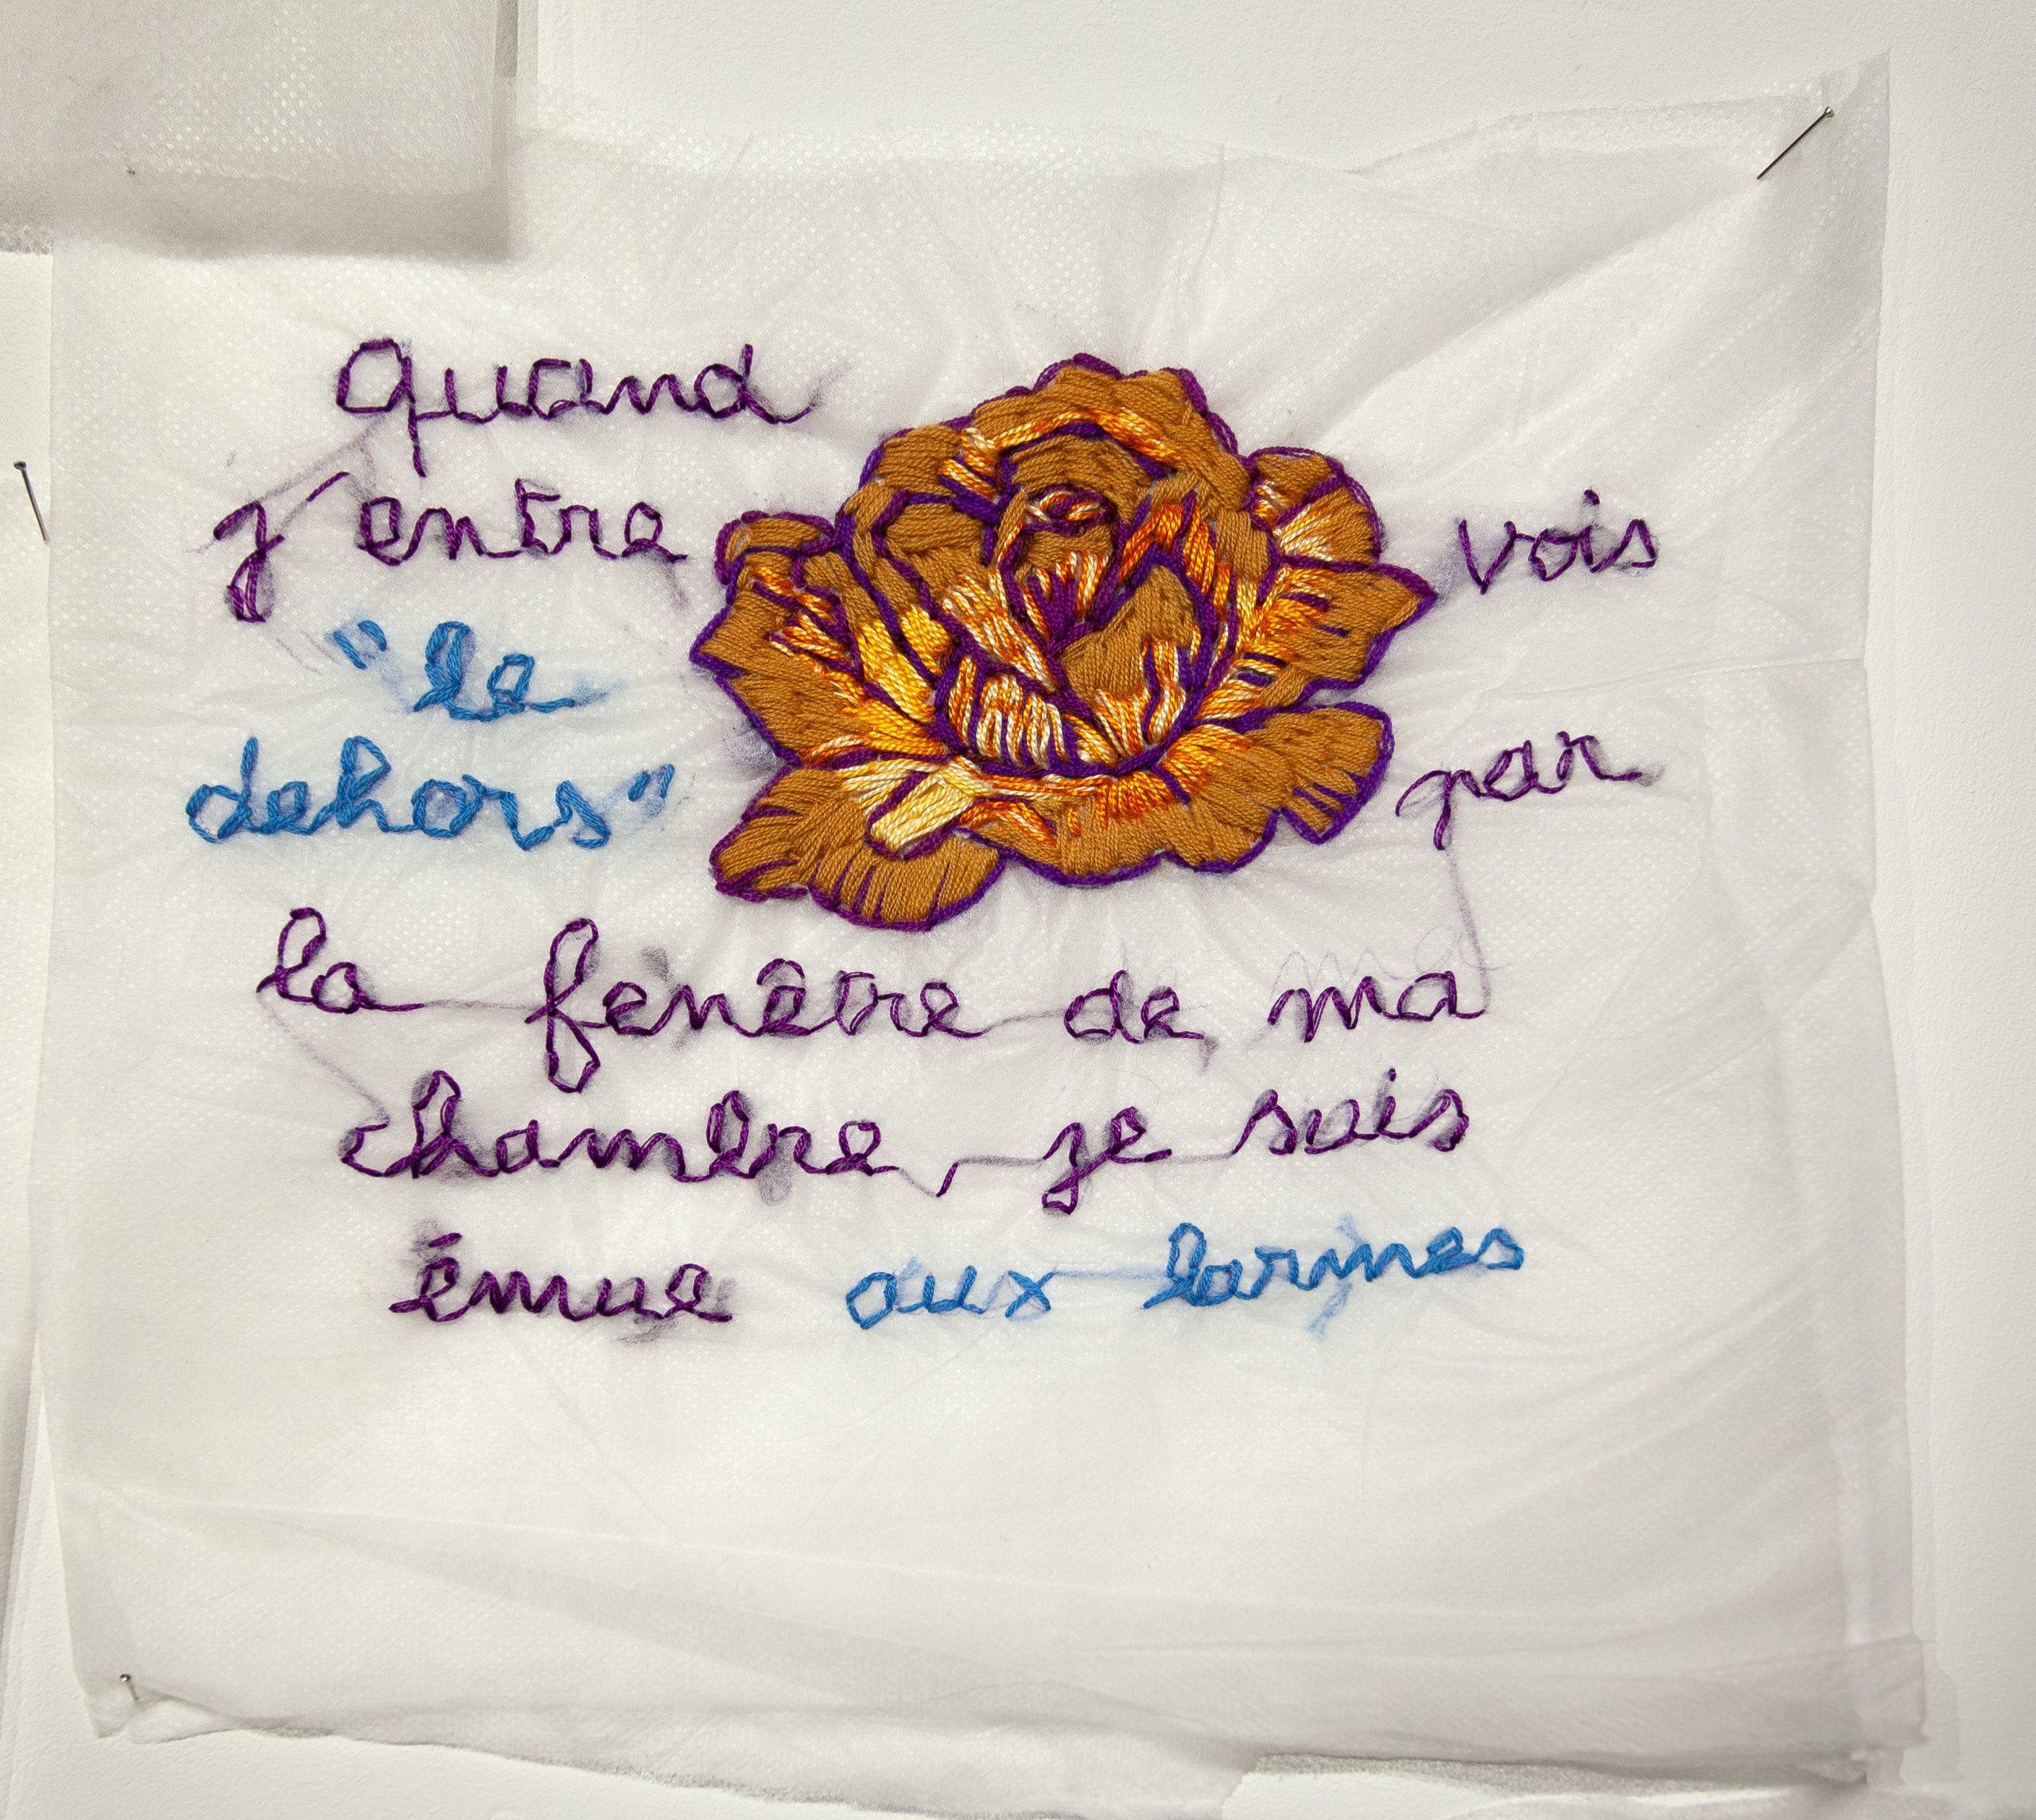 quand
j'entre vois
"le
dehors" par
la fenêtre de ma
chambre, je suis
émue aux larmes